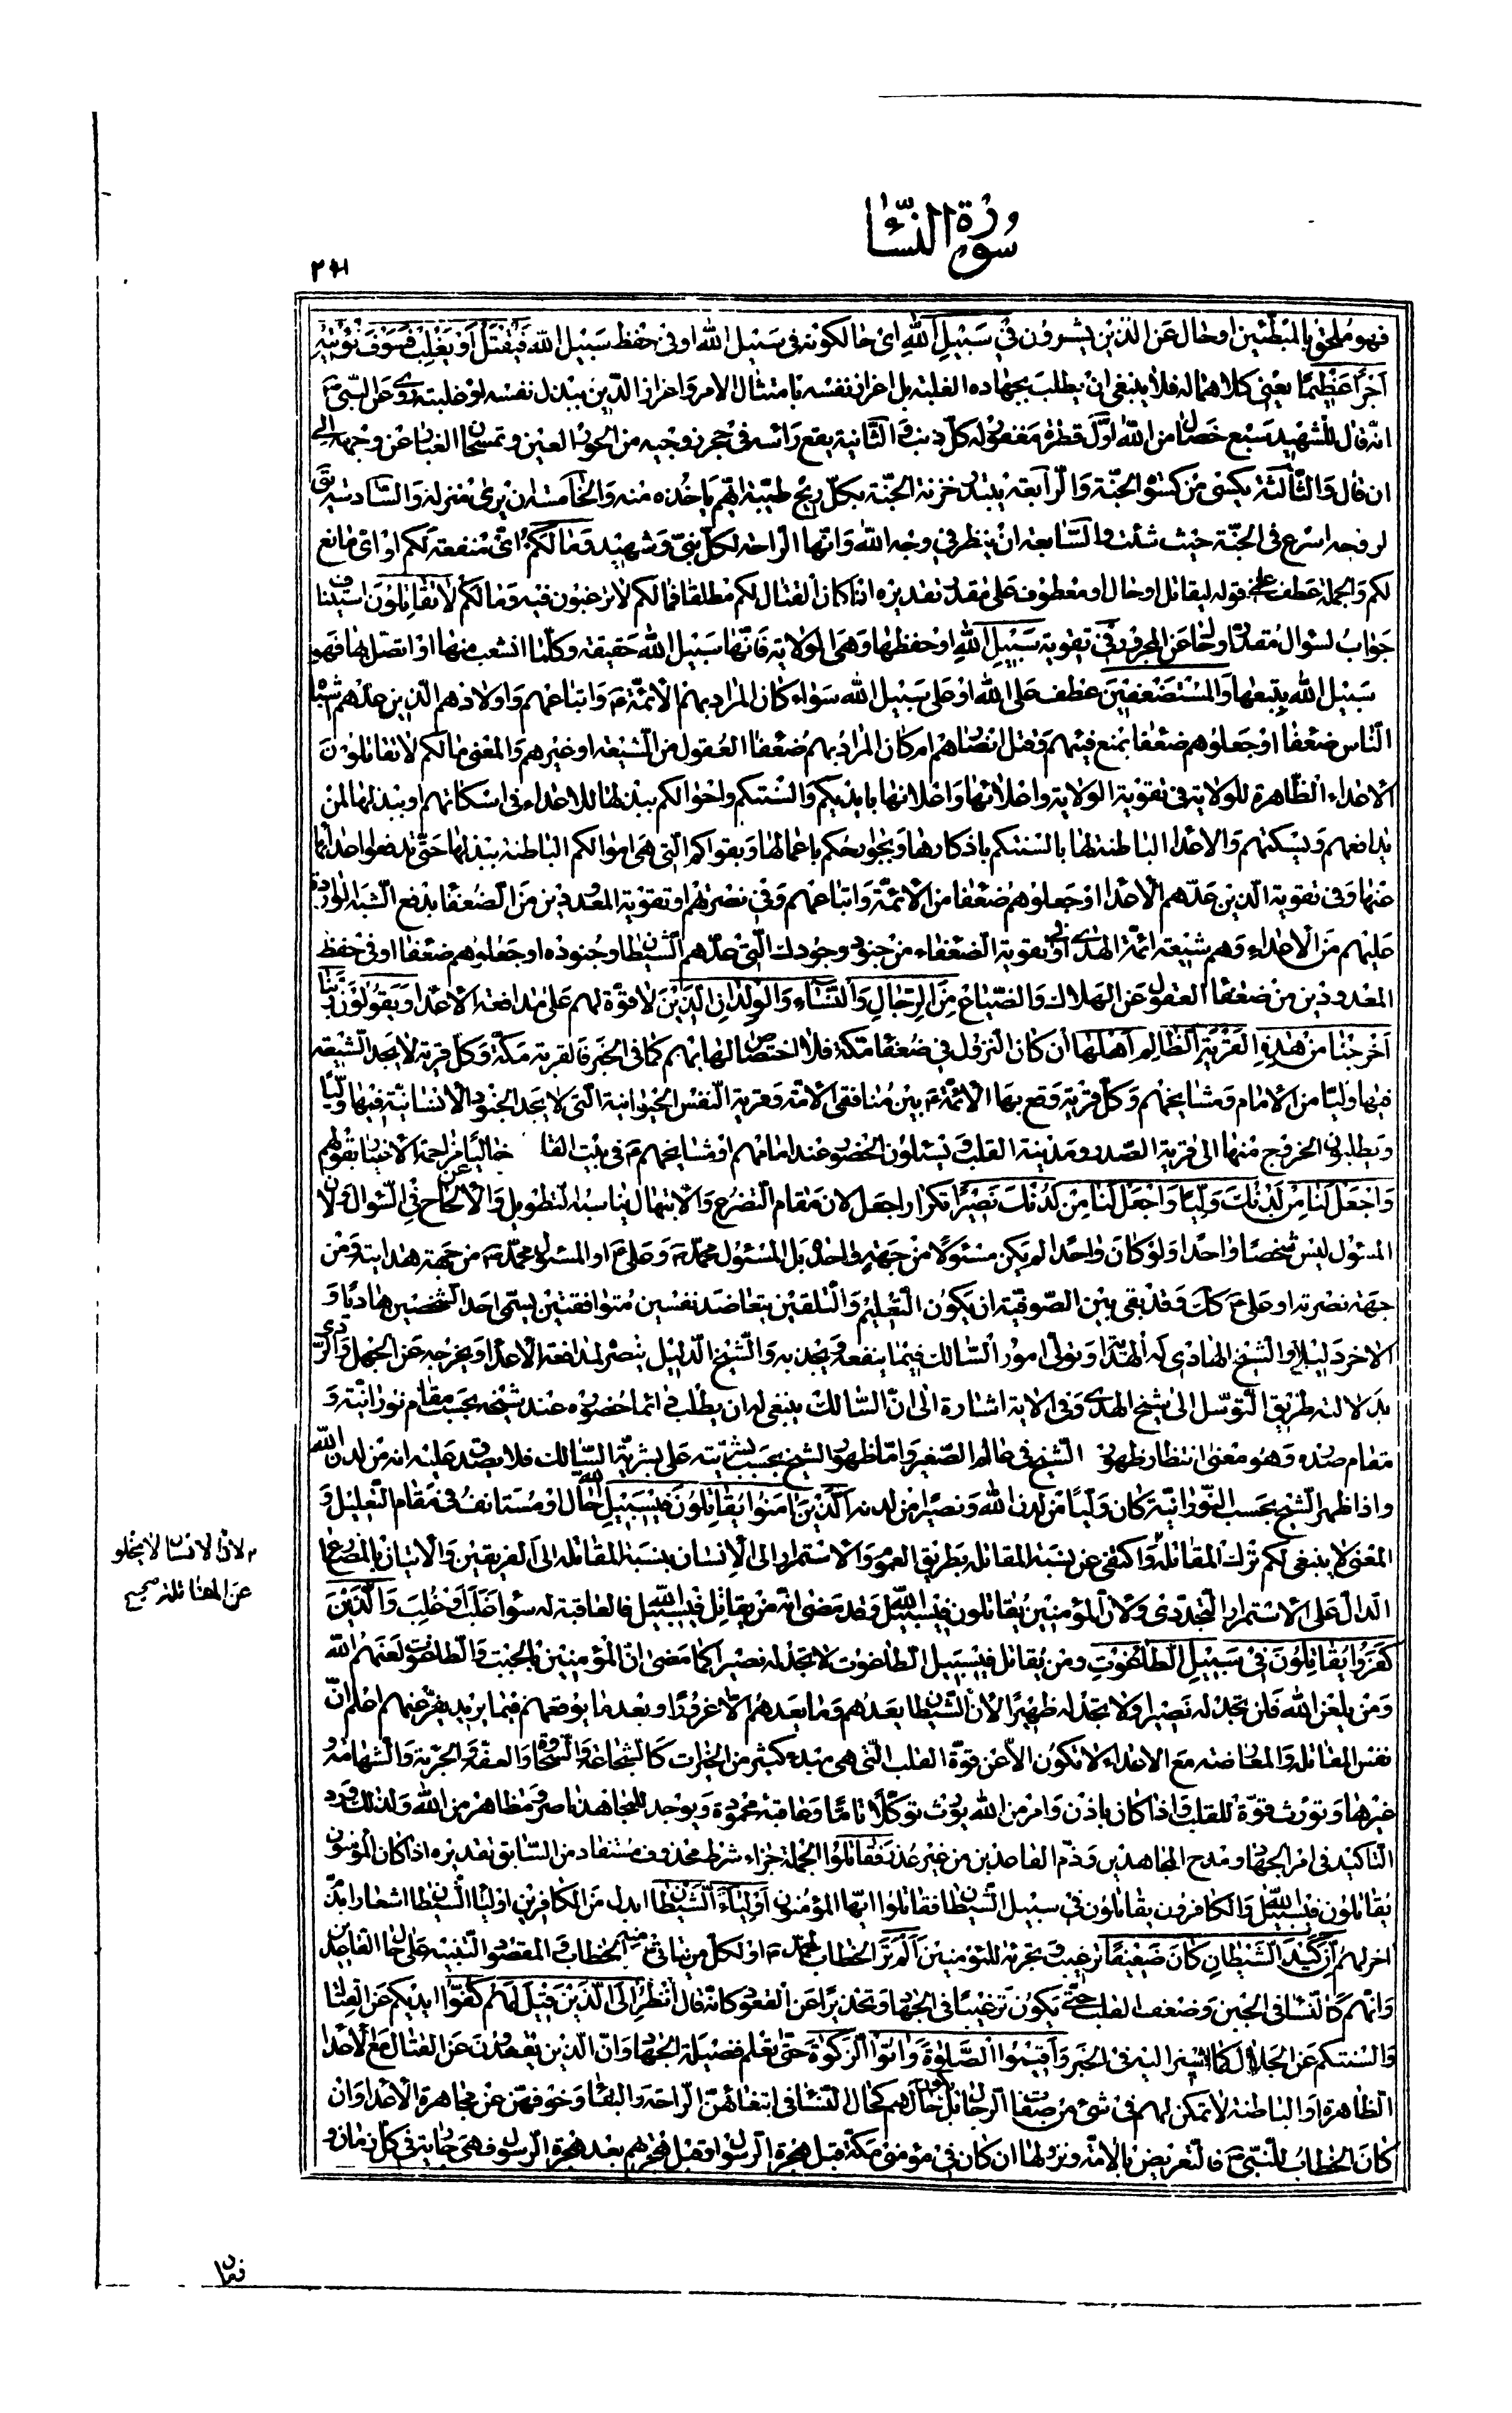 سورة النساء
۲۶۱
فهو ملحق بالمبطئين او حال عن الذين يشرون فى سبيل الله اى حالكونه فى سبيل الله او فى حفظ سبيل الله فيقتل او يغلب فسوف نؤتيه
اجرا عظيما يعنى كلاهما له فلا ينبغى ان يطلب بجهاده الغلبة بل احراز نفسه بامتثال الامر واحراز الدين ببذل نفسه او غلبته روى عن النبى ص
انه قال للشهيد سبع خصال من الله اول قطرة مغفور له كل ذنب والثانية يقع رأسه فى حجر زوجيه من الحور العين وتمسحان الغبار عن وجهه الى
ان قال والثالثة يكسى من كسوة الجنة والرابعة يبتدر خزنة الجنة بكل ريح طيبة ايهم يأخذه منه والخامسة ان يرى منزله والسادسة يقال
لروحه اسرع فى الجنة حيث شئت والسابعة ان ينظر فى وجه الله وانها الراحة لكل نبى وشهيد وما لكم اى منفعة لكم او اى مانع
لكم والجملة عطف على قوله ليقاتل او حال او معطوف على مقدر تقديره اذا كان القتال لكم مطلقا فما لكم لا ترغبون فيه وما لكم لا تقاتلون استيناف
جواب لسوال مقدر او حال عن المجرور فى تقوية سبيل الله او حفظها وهى الولاية فانها سبيل الله حقيقة وكلما انشعب منها او اتصل بها فهو
سبيل الله بتبعها والمستضعفين عطف على الله او على سبيل الله سواء كان المراد بهم الائمة ع واتباعهم واولادهم الذين عدهم اشباه
الناس ضعفاء او جعلوهم ضعفاء بمنع فيئهم وقتل انصارهم ام كان المراد بهم ضعفاء العقول من الشيعة او غيرهم والمعنى ما لكم لا تقاتلون
الاعداء الظاهرة للولاية فى تقوية الولاية واعلائها واعلانها بايديكم والسنتكم واموالكم ببذلها للاعداء فى اسكاتهم او ببذلها لمن
يدافعهم ويسكتهم والاعداء الباطنة لها بالسنتكم باذكارها وبجوارحكم باعمالها وبقواكم التى هى اموالكم الباطنة ببذلها حتى تدفعوا اعدائها
عنها وفى تقوية الذين عدهم الاعداء او جعلوهم ضعفاء من الائمة واتباعهم وفى نصرتهم او تقوية المعدودين من الضعفاء بدفع الشبه الواردة
عليهم من الاعداء وهم شيعة ائمة الهدى او فى تقوية الضعفاء من جنود وجودك التى عدهم الشيطان وجنوده او جعلوهم ضعفاء او فى حفظ
المعدودين من ضعفاء العقول عن الهلاك والضياع من الرجال والنساء والولدان الذين لا قوة لهم على مدافعة الاعداء ويقولون ربنا
اخرجنا من هذه القرية الظالم اهلها ان كان النزول فى ضعفاء مكة فلا اختصاص لها بهم كما فى الخبر فالقرية مكة وكل قرية لا يجد الشيعة
فيها وليا من الامام ومشايخهم وكل قرية وقع بها الائمة ع بين منافقى الامة وقرية النفس الحيوانية التى لا يجد الجنود الانسانية فيها وليا
ويطلبون الخروج منها الى قرية الصدر ومدينة القلب ويسئلون الحضور عند امامهم او مشايخهم ع فى بيت القلب خاليا عن مزاحمة الاغيار بقولهم
واجعل لنا من لدنك وليا واجعل لنا من لدنك نصيرا تكرار اجعل لان مقام التضرع والابتهال يناسبه التطويل والالحاح فى السوال ولان
المسئول ليس شخصا واحدا ولو كان واحدا لم يكن مسئولا من جهة واحدة بل المسئول محمد ص وعلى ع او المسئول محمد ص من جهة هدايته ومن
جهة نصرته او على ع كذلك وقد بقى بين الصوفية ان يكون التعليم والتلقين بتعاضد نفسين متوافقتين يسمى احد الشخصين هاديا و
الاخر دليلا والشيخ الهادى له الهداية وتولى امور السالك فيما ينفعه ويجذبه والشيخ الدليل ينصر لمدافعة الاعداء ويخرجه عن الجهل والردى
بدلالته طريق التوسل الى شيخ الهدى وفى الاية اشارة الى ان السالك ينبغى له ان يطلب دائما حضوره عند شيخه بحسب مقام نورانيته و
مقام صدره وهو معنى انتظار ظهور الشيخ فى عالم الصغير واما ظهور الشيخ بحسب بشريته على بشرية السالك فلا يصدق عليه انه من لدن الله
واذا ظهر الشيخ بحسب النورانية كان وليا من لدن الله ونصيرا من لدنه الذين امنوا يقاتلون فى سبيل الله حال او مستانف فى مقام التعليل و
المعنى لا ينبغى لكم ترك المقاتلة واكتفى عن نسبة المقاتلة بطريق العموم والاستمرار الى الانسان بنسبة المقاتلة الى الفريقين والاتيان بالمضارع
الدال على الاستمرار التجددى ولان المؤمنين يقاتلون فى سبيل الله وقد مضى ان من يقاتل فى سبيل الله فالعاقبة له سواء غلب او غلب والذين
كفروا يقاتلون فى سبيل الطاغوت ومن يقاتل فى سبيل الطاغوت لا تجد له نصيرا كما مضى ان المؤمنين بالجبت والطاغوت لعنهم الله
ومن يلعن الله فلن تجد له نصيرا ولا تجد له ظهيرا لان الشيطان يعدهم وما يعدهم الا غرورا وبعد ما يوقعهم فيما يريد يفر عنهم اعلم ان
نفس المقاتلة والمعارضة مع الاعداء لا تكون الا عن قوة القلب التى هى مبدء كثير من الخيرات كالشجاعة والسخاوة والعفة والجرية والشهامة و
غيرها وتورث قوة للقلب واذا كان باذن وامر من الله يورث توكلا تاما وعاقبة محمودة ويوجد للمجاهد ناصر ومظاهر من الله ولذلك ورد
التاكيد فى امر الجهاد ومدح المجاهدين وذم القاعدين من غير عذر فقاتلوا الجملة جزاء شرط محذوف مستفاد من السابق تقديره اذا كان المؤمنون
يقاتلون فى سبيل الله والكافرون يقاتلون فى سبيل الشيطان فقاتلوا ايها المؤمنون اولياء الشيطان ابدل من الكافرين اولياء الشيطان اشعارا بذم
اخر لهم ان كيد الشيطان كان ضعيفا ترغيب وتجرئة للمؤمنين الم تر الخطاب لمحمد ص او لكل من يتاتى منه الخطاب والمقصود التنبيه على حال القاعدين
وانهم كالنساء فى الجبن وضعف القلب حتى يكون ترغيبا فى الجهاد وتحذيرا عن القعود كانه قال انظر الى الذين قيل لهم كفوا ايديكم عن القتال
والسنتكم عن الجدال كما اشير اليه فى الخبر واقيموا الصلوة واتوا الزكوة حتى تعلم فضيلة الجهاد وان الذين يقعدون عن القتال مع الاعداء
الظاهرة او الباطنة لا تمكن لهم فى شئ من صفات الرجال بل حالهم كحال النساء فى ابتغائهن الراحة والبقاء وخوفهن عن مجاهرة الاعداء وان
كان الخطاب للنبى ص فالتعريض بالامة ونزولها ان كان فى مؤمنى مكة قبل هجرة الرسول او قبل هجرتهم بعد هجرة الرسول فهى جارية فى كل زمان و
لان الانسان لا يخلو
عن المقاتلة صحيح